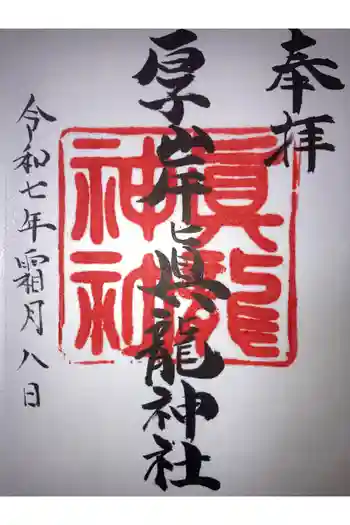 奉拝
厚岸眞龍神社
眞龍神社
令和七年霜月八日